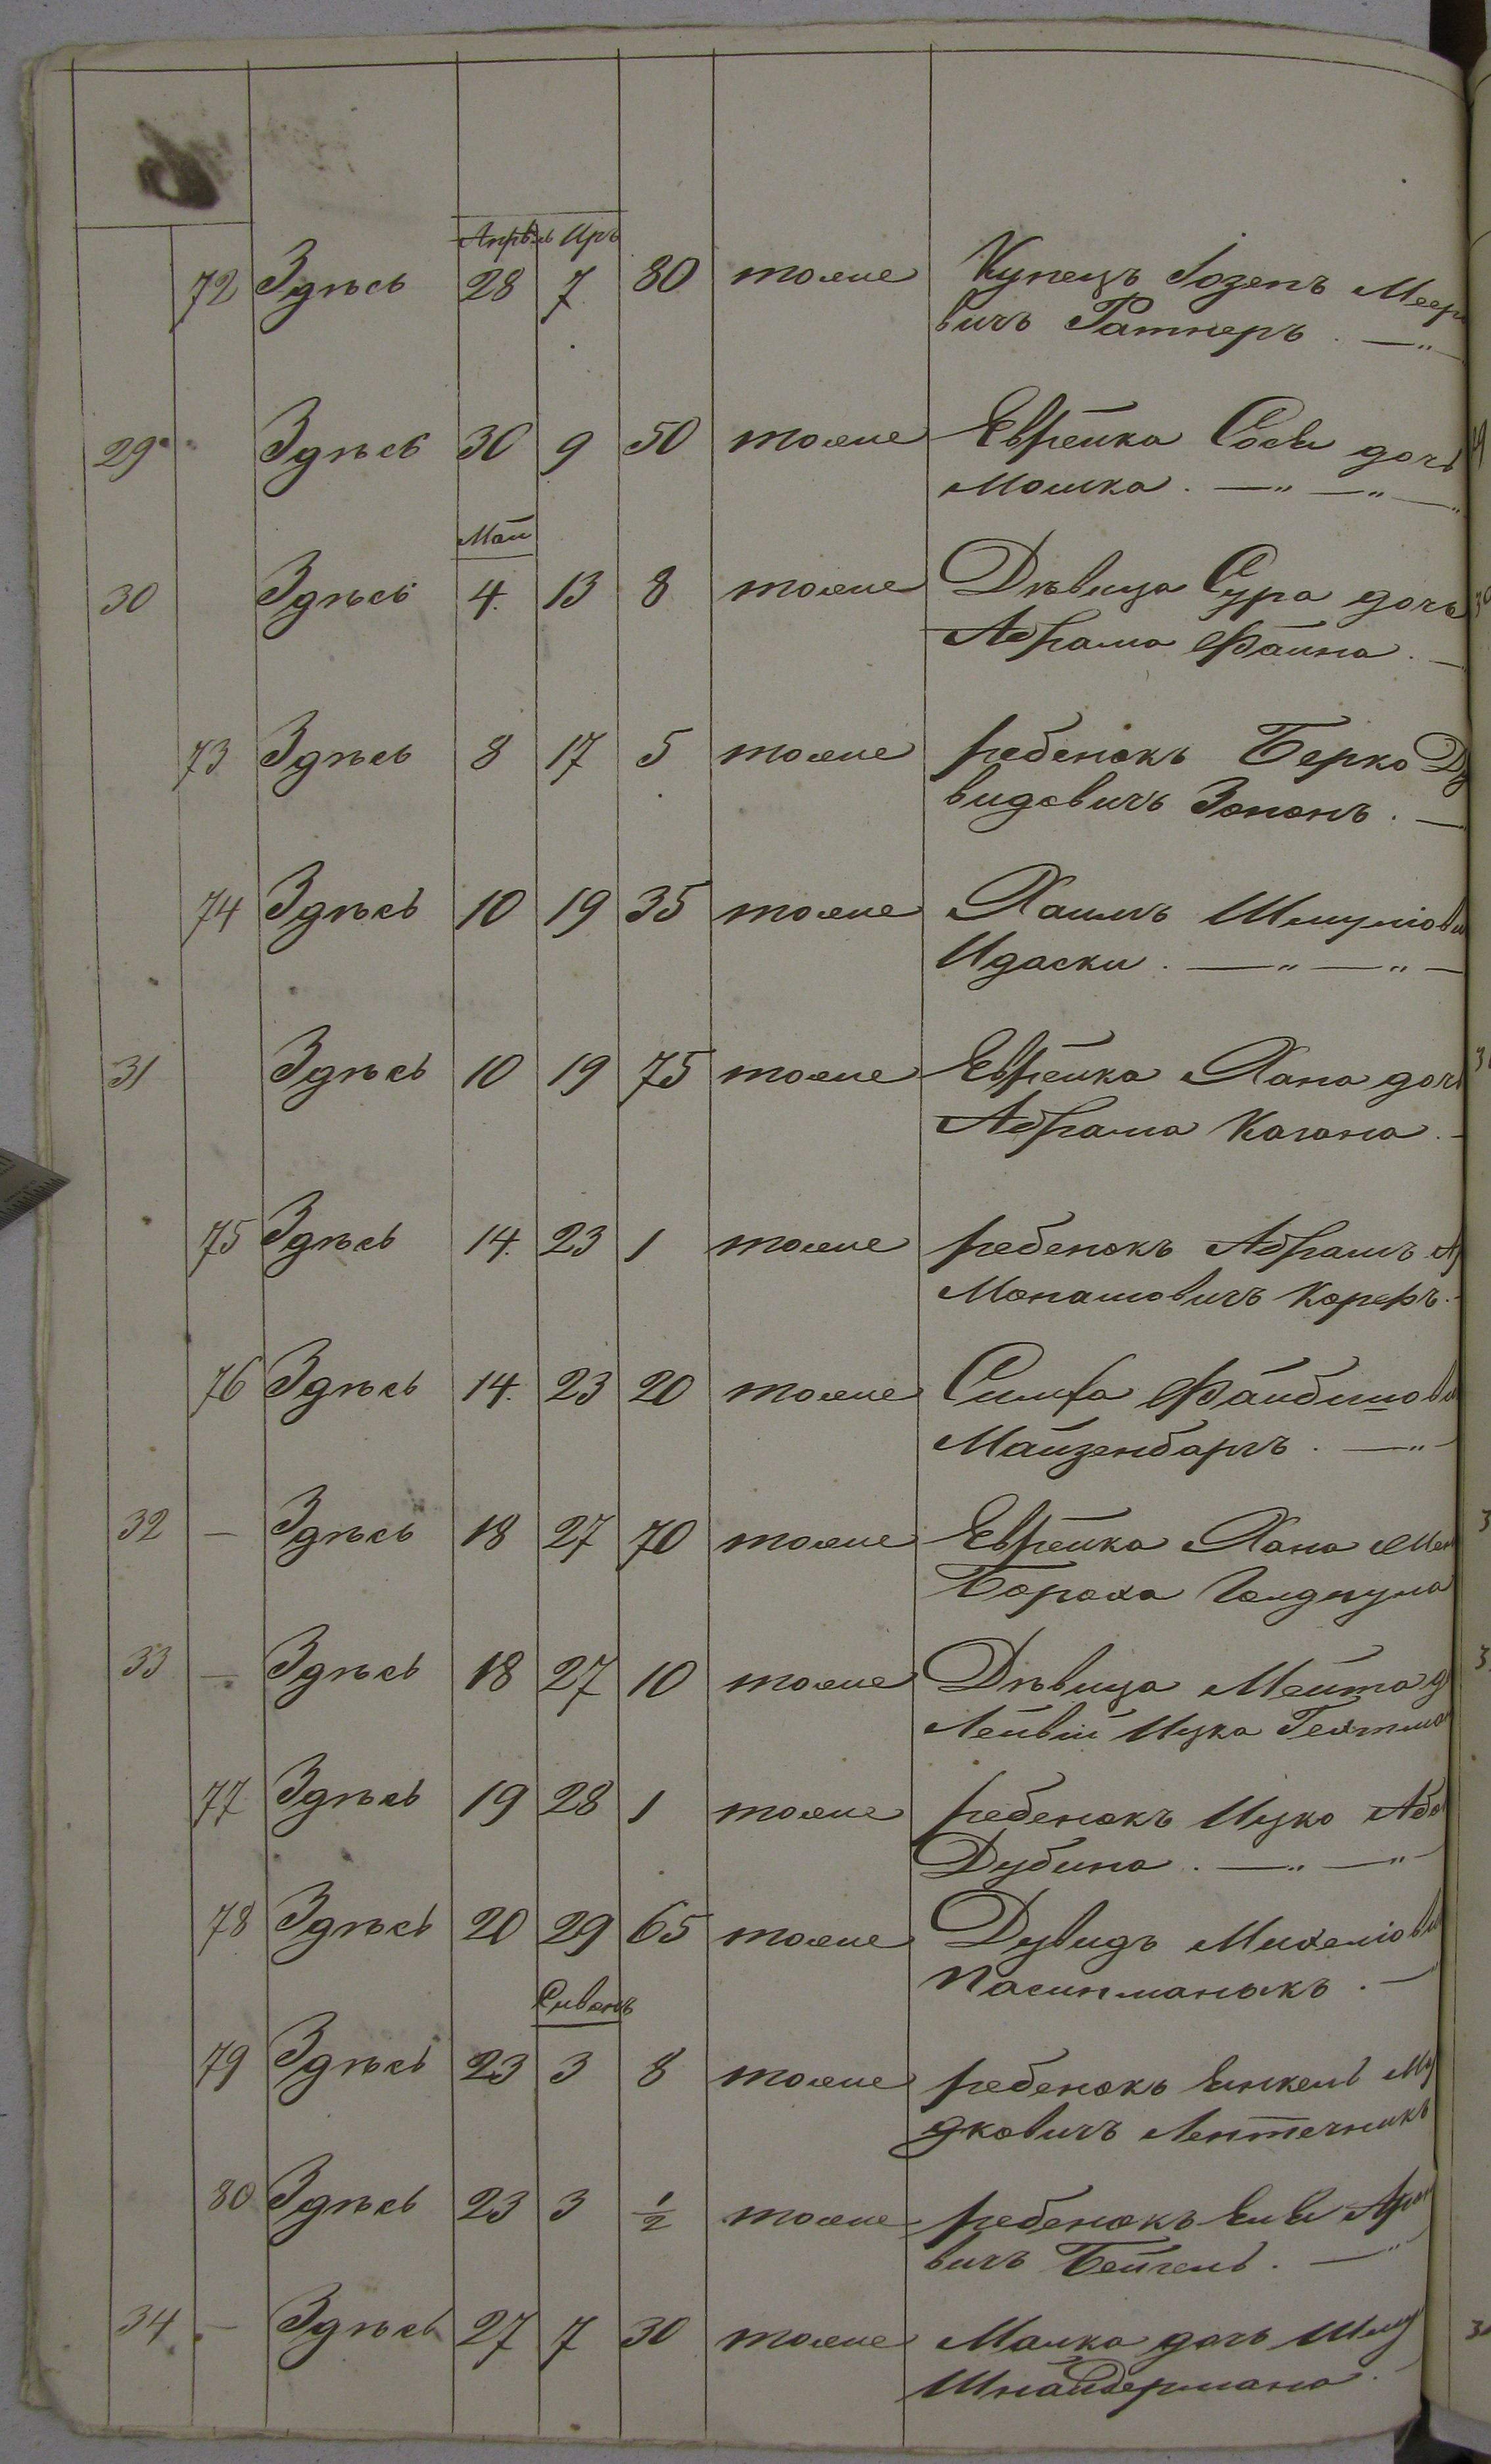 Апрѣль Иръ
72 Здѣсь 28 7 80 тоже Купецъ Іозепъ Меер
вичъ Ратнеръ . — " —
29 Здѣсь 30 9 50 тоже Еврейка Сося дочь
Мошка . — " — " — "
Май
30 Здѣсь 4. 13 8 тоже Дѣвица Сура дочь
Абрама Файна . —
73 Здѣсь 8 17 5 тоже ребенокъ Берко Ду
видовичъ Зононъ . —
74 Здѣсь 10 19 35 тоже Хаимъ Шмуліови
Идаски . — " — " —
31 Здѣсь 10 19 75 тоже Еврейка Хана дочь
Абрама Кагана . —
75 Здѣсь 14. 23 1 тоже ребенокъ Абрамъ
Монашовичъ Кореръ . —
76 Здѣсь 14. 23 20 тоже Симха Файбишови
Майзенбаргъ . — " —
32 — Здѣсь 18 27 70 тоже Еврейка Хана
Бороха Голдпума
33 — Здѣсь 18 27 10 тоже Дѣвица Мейта д
Лейвій Ицка Гехтман
77 Здѣсь 19 28 1 тоже ребенокъ Ицко Або
Дубина . — " — "
78 Здѣсь 20 29 65 тоже Дувидъ Михеліови
Пасинманыкъ . — "
Сиванъ
79 Здѣсь 23 3 8 тоже ребенокъ Янкель Му
дковичъ Лентечникъ
80 Здѣсь 23 3 1/2 тоже ребенокъ Арон
вичъ Бейгель . — "
34 — Здѣсь 27 7 30 тоже Малка дочь Шму
Шнайдермана . —